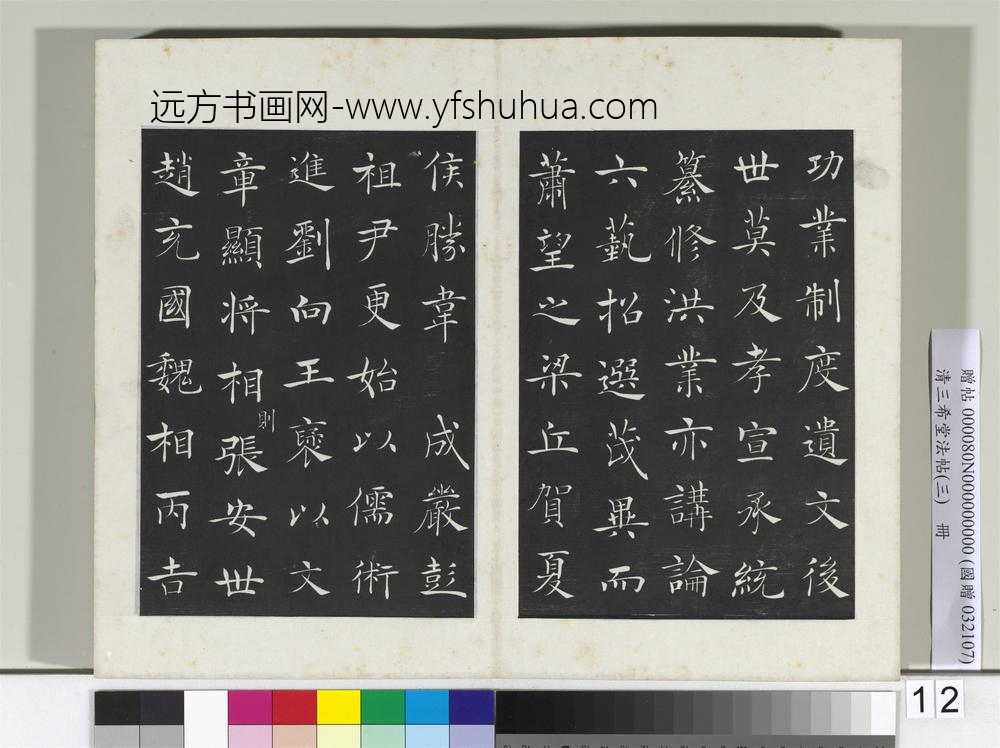 远方书画网-www.yfshuhua.com
功業制度遺文後
世莫及孝宣承統
纂修洪業亦講論
六藝招選茂異而
蕭望之梁丘賀夏
侯勝韋成嚴彭
祖尹更始以儒術
進劉向王褒以文
章顯將相張安世
則
趙充國魏相丙吉
贈帖 000080N000000000 (國贈 032107)
清三希堂法帖(三) 冊
12